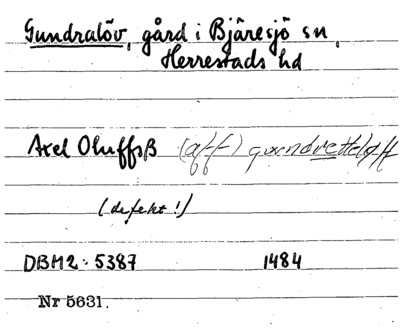 Gundralöv, gård i Bjäresjö sn,
Herrestads hd
Axel Oluffsß (aff)
(defekt!)
DBM2: 5387 1484
Nr 5631.